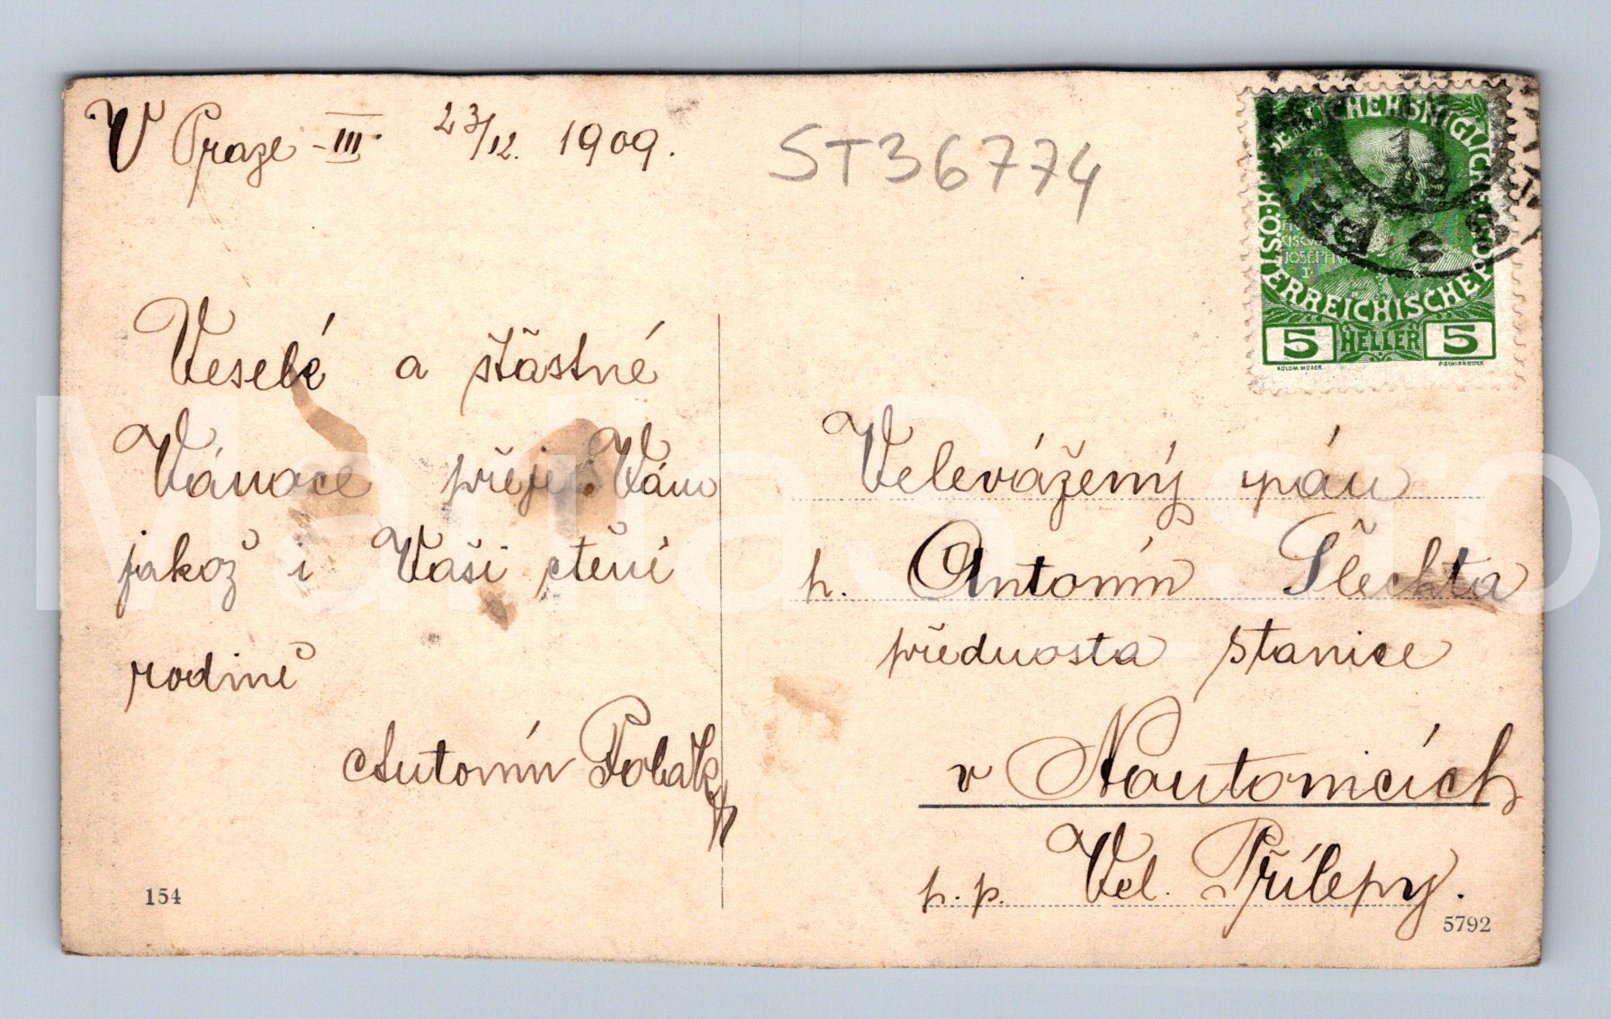 V Praze - III. 23/12. 1909.
ST36774
Veselé a šťastné
Vánoce přeji Vám
jakož i Vaši ctěné
rodině
Antonín Polák
154
KAIS. KÖNIGLICHE ÖSTERREICHISCHE POST
JOSEPH
I
5 HELLER 5
KOLOM. MOSER.
F. SCHIRNBÖCK
Velevážený pán
p. Antonín Šlechta
přednosta stanice
v Noutonicích
p. p. Vel. Přílepy.
5792